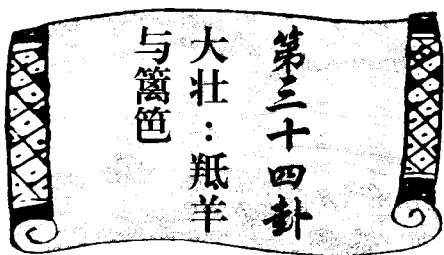 第三十四卦
大壮：羝羊
与篱笆